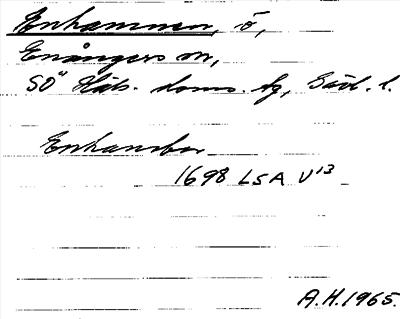 Enhammen, ö,
Enångers sn,
SÖ Häls. doms. tg, Gävl. l.
Enhamber
1698 LSA V13
A.H. 1965.